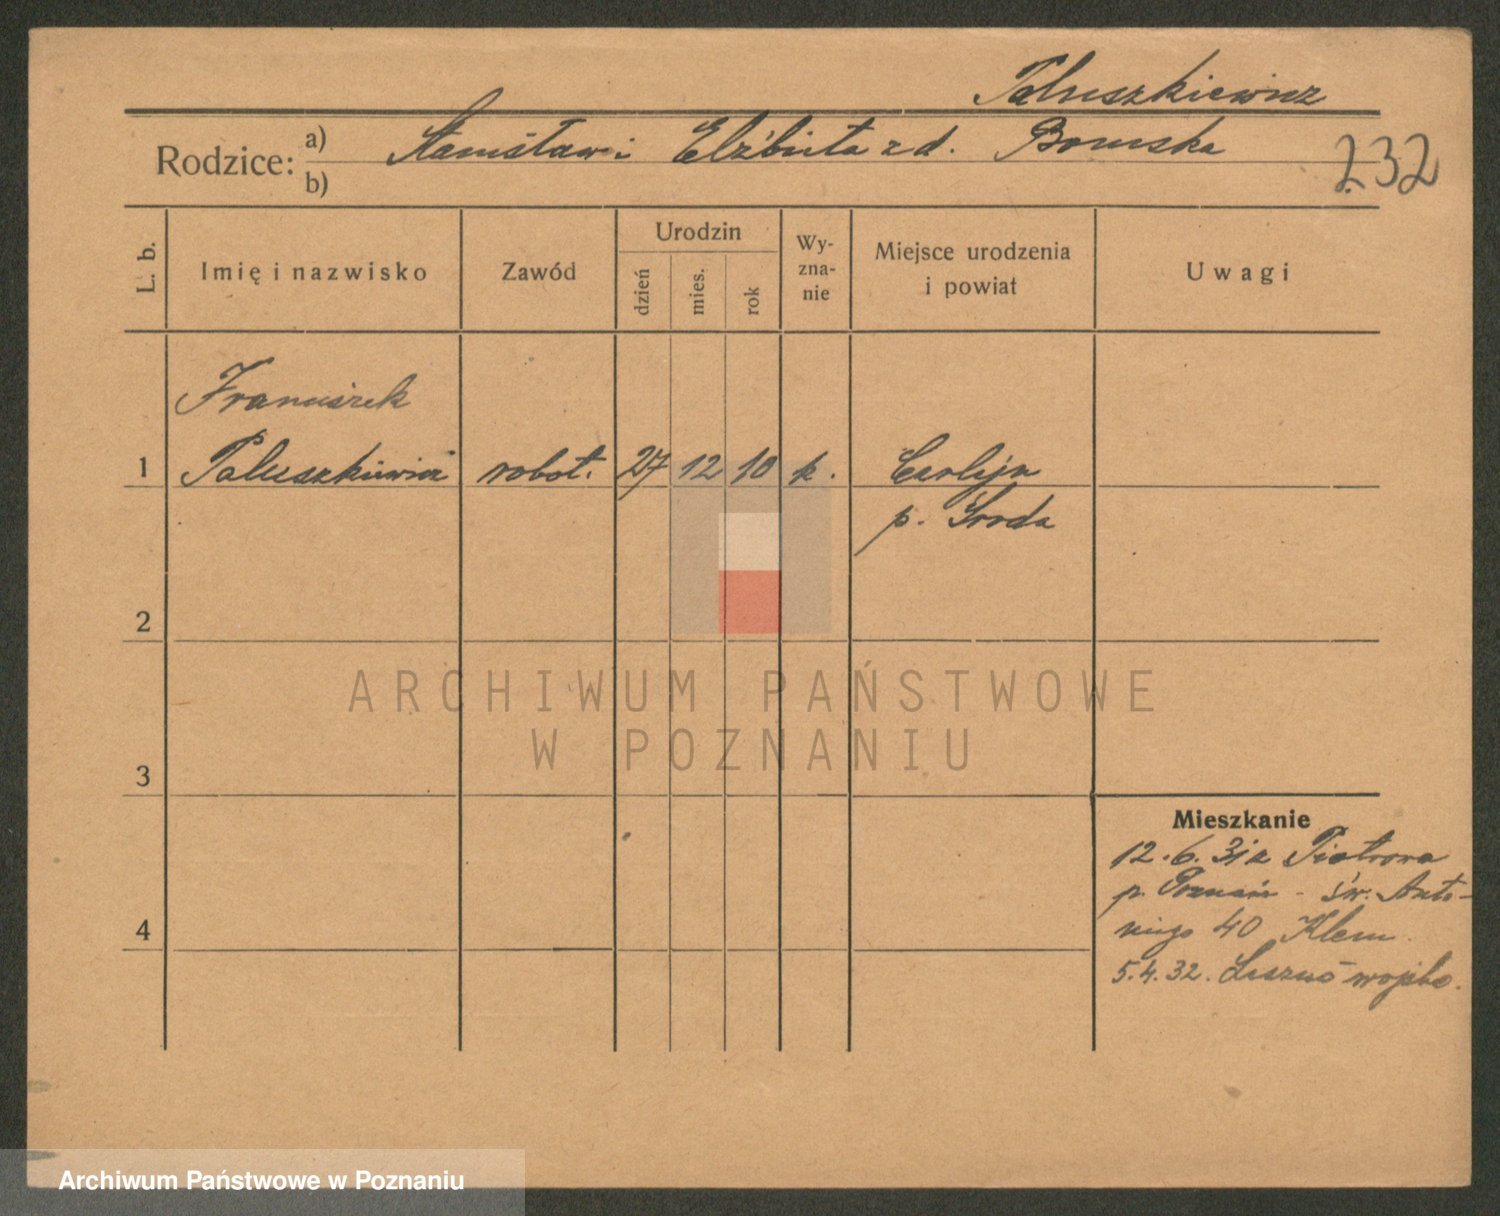 Paluszkiewicz
Rodzice: a) Stanisław i Elżbieta z d. Bomska
b)
232
L. b.
Imię i nazwisko
Zawód
Urodzin
dzień
mies.
rok
Wy-
zna-
nie
Miejsce urodzenia
i powiat
Uwagi
Franciszek
1 Paluszkiewicz robot. 27 12 10 k.
p. Środa
2
ARCHIWUM PAŃSTWOWE
W POZNANIU
3
Mieszkanie
12.6.31 z Piotrowa
p. Poznań - św. Anto-
niego 40 Klem
4
5.4.32. Leszno - wojsko.
Archiwum Państwowe w Poznaniu